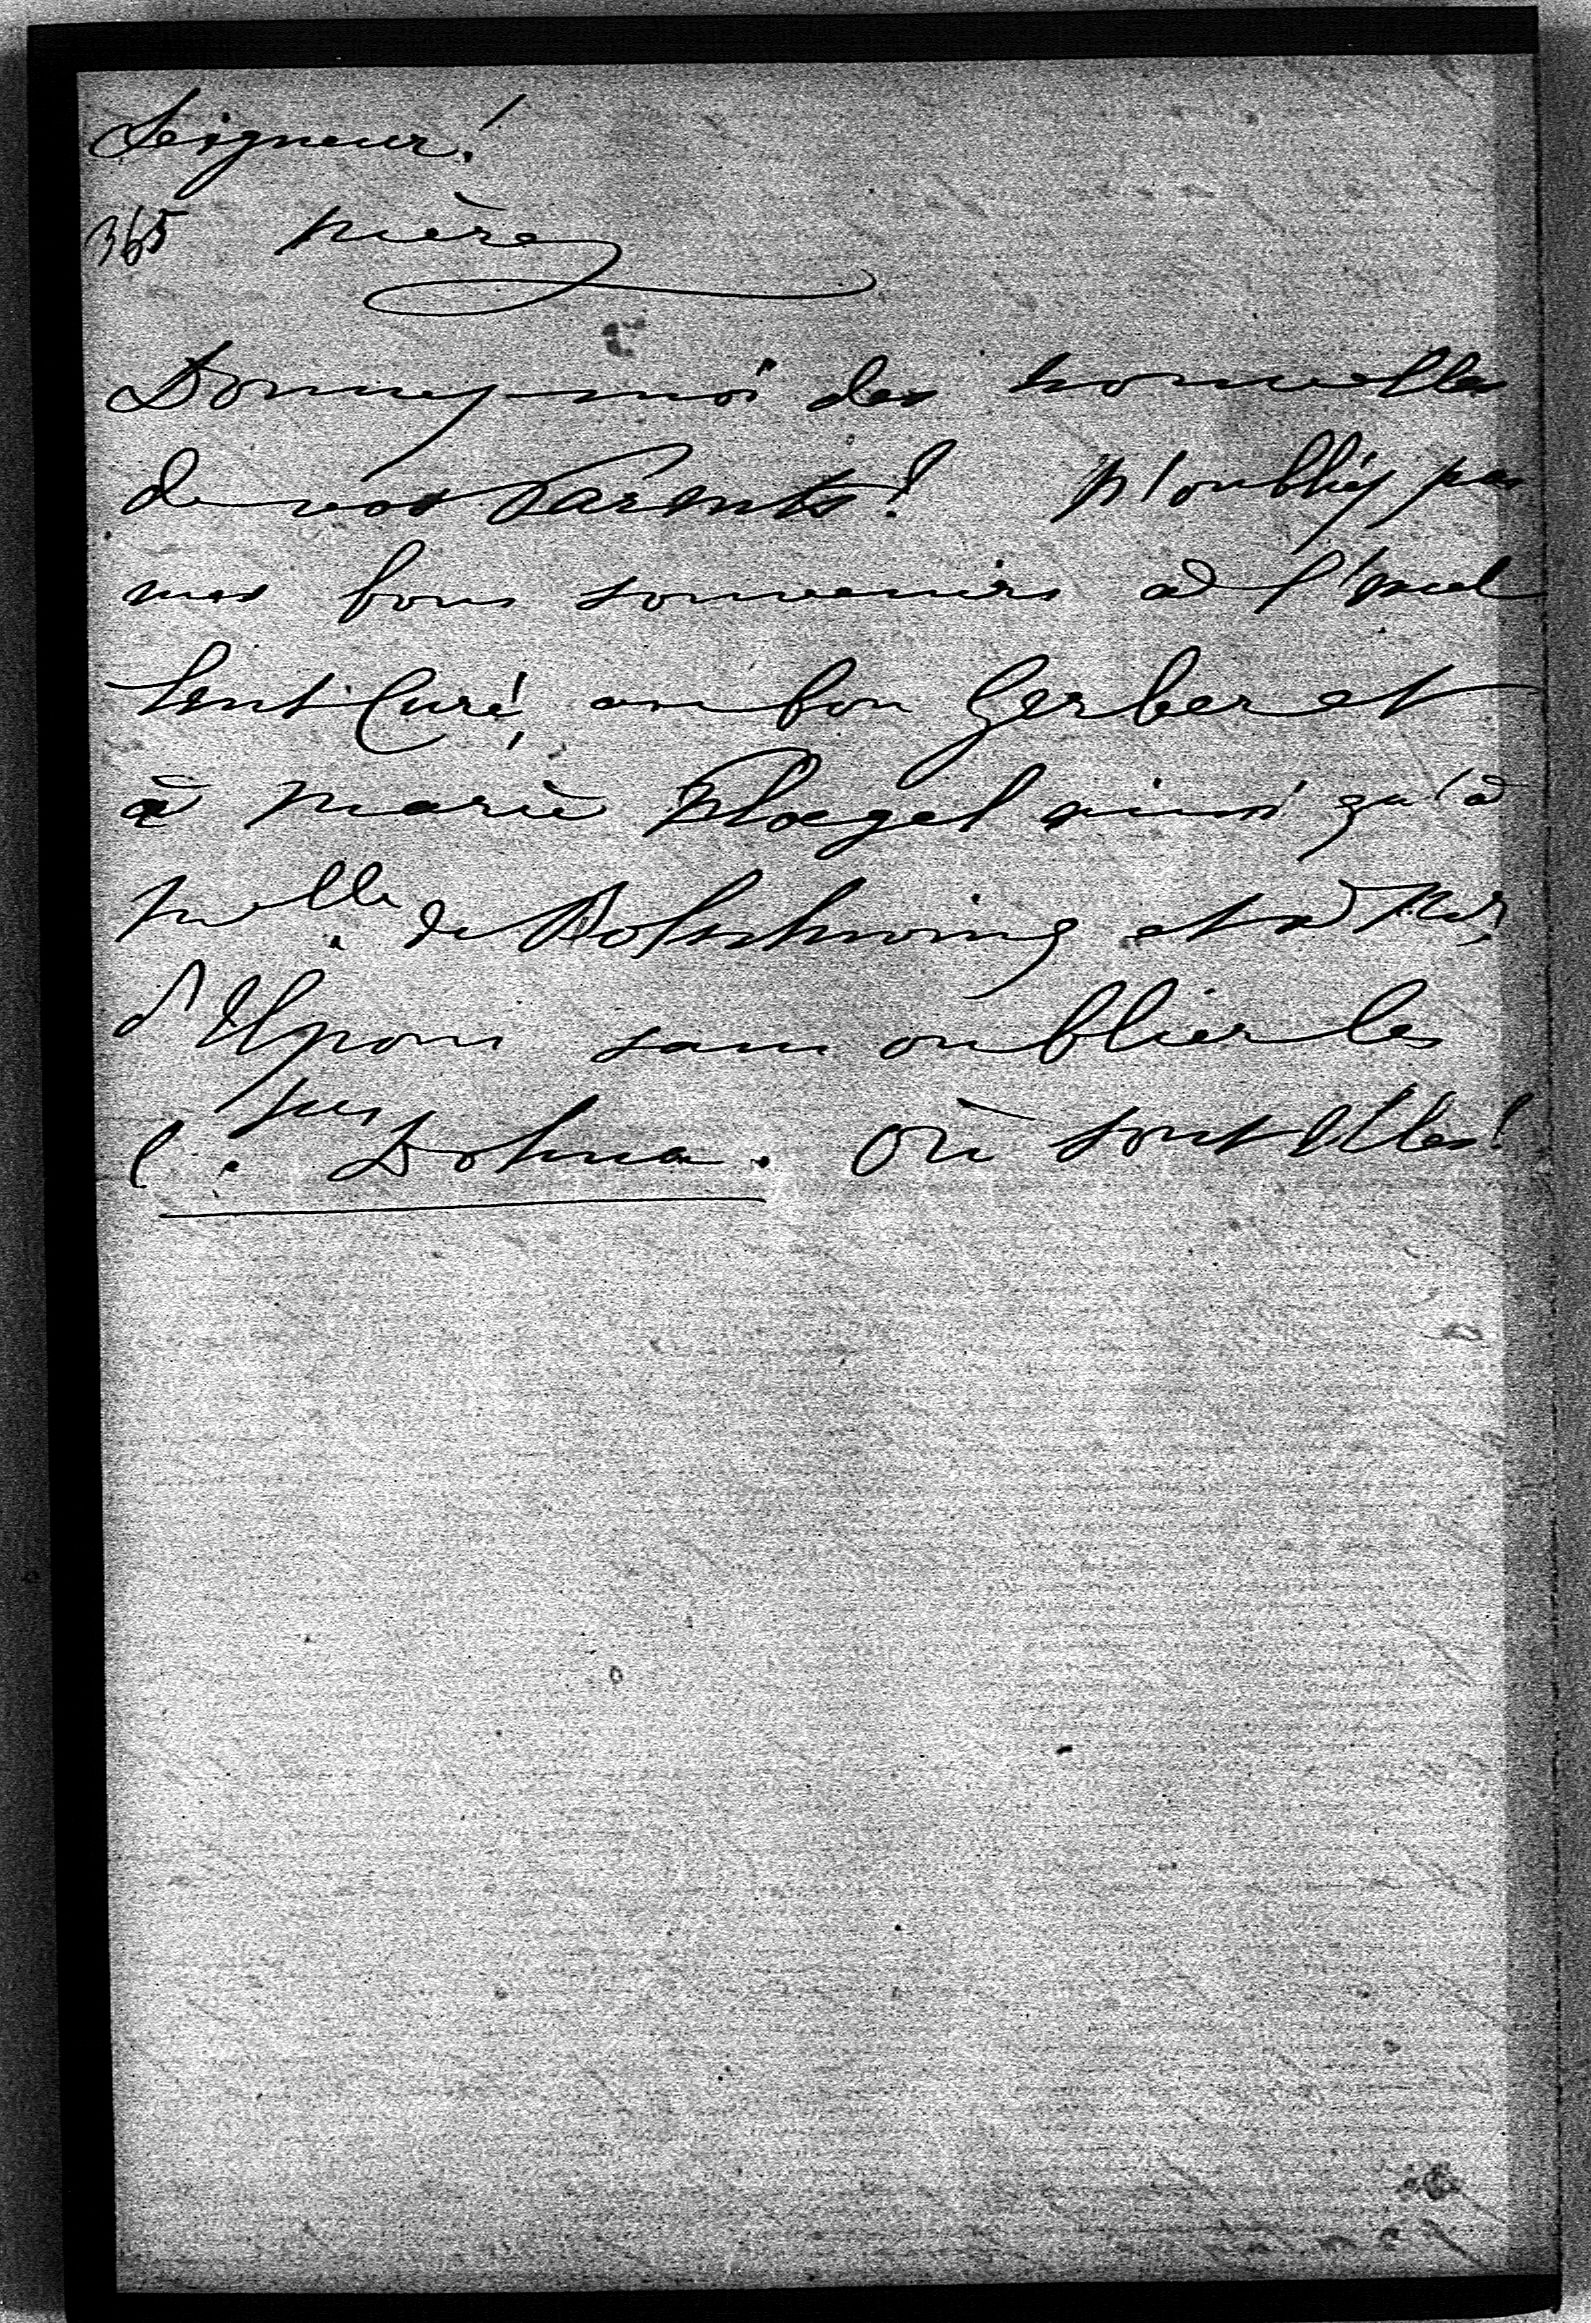 Seigneur!
365 mère
Donnez-moi des nouvelles
de vos Parents! N'oubliez pas
mes bons souvenirs à l'excel
lent Curé, au bon Gerber et
à Marie ainsi qu'à
Melle. de et à Mad,
d' sans oublier les
C.sses Dohna. Où sont Elles!